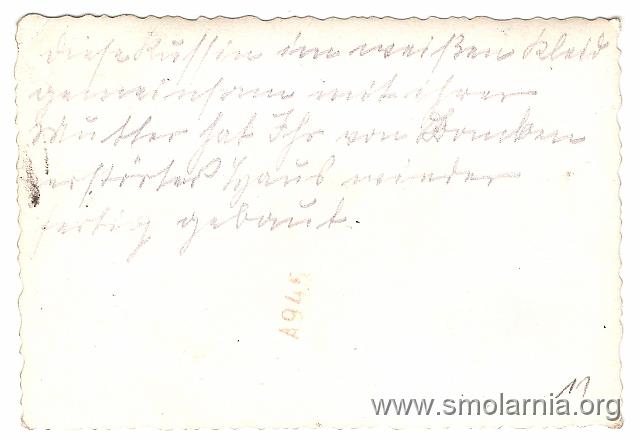 diese Russin im weißen Kleid
gemeinsam mit ihrer
Mutter hat Ihr von Bomben
zerstörtes Haus wieder
fertig gebaut.
A945
11
www.smolarnia.org